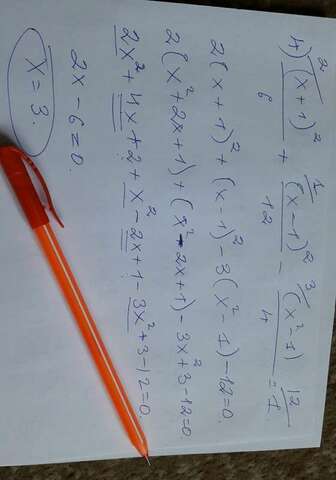 4) (x+1)²/6 + (x-1)²/12 - (x²-1)/4 = 1.
2(x+1)² + (x-1)² - 3(x²-1) - 12 = 0.
2(x²+2x+1) + (x²-2x+1) - 3x²+3-12=0
2x²+4x+2+x²-2x+1-3x²+3-12=0.
2x-6=0.
x=3.